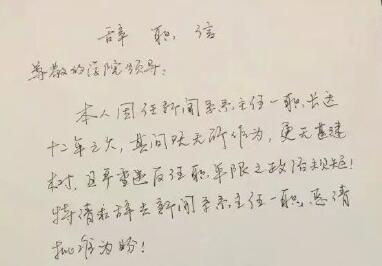 辞职信
尊敬的学院领导：
本人因任新闻系系主任一职，长达
十二年之久，其间既无所作为，更无建
树，且严重违反任职年限之政治规矩！
特请求辞去新闻系系主任一职，恳请
批准为盼！